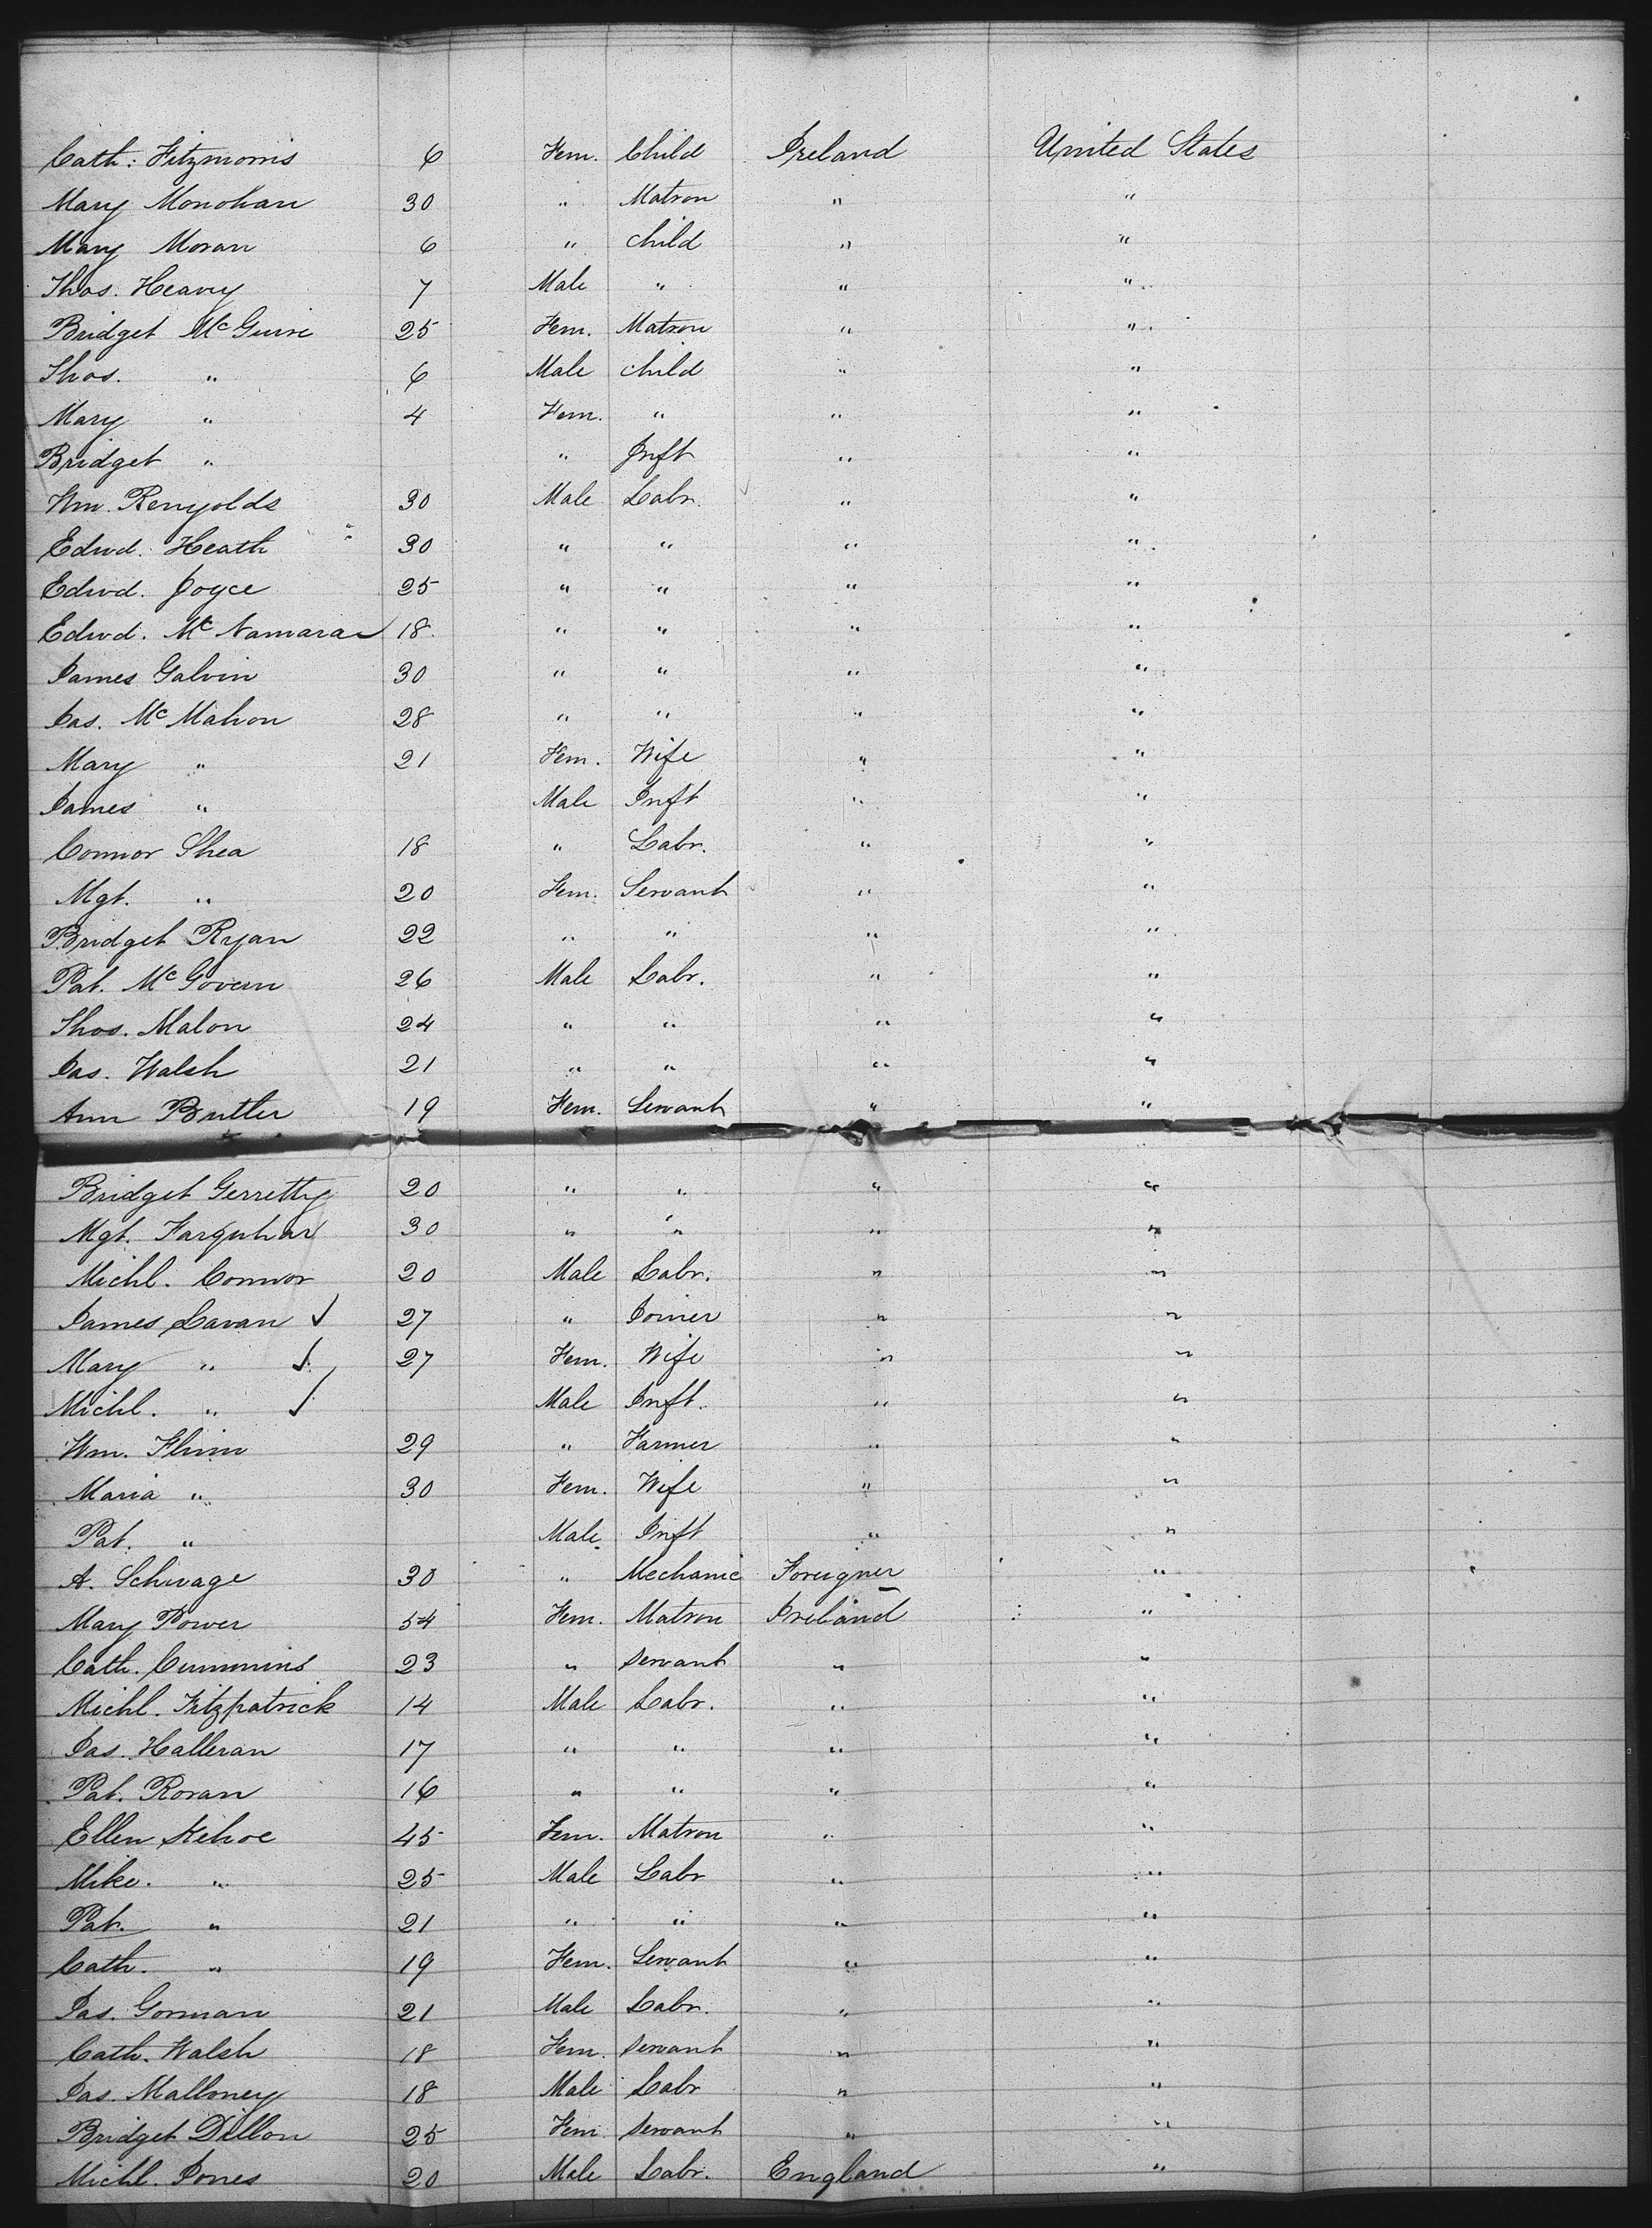 Cath: Fitzmorris 6 Fem. Child Ireland United States
Mary Monohan 30 " Matron " "
Mary Moran 6 " child " "
Thos. Heavy 7 Male " " "
Bridget McGuire 25 Fem. Matron " "
Thos. " 6 Male child " "
Mary " 4 Fem. " " "
Bridget " " Inft " "
Wm. Renyolds 30 Male Labr. " "
Edwd. Heath 30 " " " "
Edwd. Joyce 25 " " " "
Edwd. McNamara 18 " " " "
James Galvin 30 " " " "
Jas. McMahon 28 " " " "
Mary " 21 Fem. Wife " "
James " Male Inft " "
Connor Shea 18 " Labr. " "
Mgt. " 20 Fem. Servant " "
Bridget Ryan 22 " " " "
Pat. McGovern 26 Male Labr. " "
Thos. Malon 24 " " " "
Jas. Walsh 21 " " " "
Ann Butler 19 Fem. Servant " "
Bridget Gerretty 20 " " " "
Mgt. Farquhar 30 " " " "
Michl. Connor 20 Male Labr. " "
James Lavan ✓ 27 " Joiner " "
Mary " ✓ 27 Fem. Wife " "
Michl. " ✓ Male Inft. " "
Wm. Flinn 29 " Farmer " "
Maria " 30 Fem. Wife " "
Pat. " Male Inft " "
A. Schwage 30 " Mechanic Foreigner "
Mary Power 54 Fem. Matron Ireland "
Cath. Cummins 23 " servant " "
Michl. Fitzpatrick 14 Male Labr. " "
Jas. Halleran 17 " " " "
Pat. Roran 16 " " " "
Ellen Kehoe 45 Fem. Matron " "
Mike. " 25 Male Labr " "
Pat. " 21 " " " "
Cath. " 19 Fem. Servant " "
Jas. Gorman 21 Male Labr. " "
Cath. Walsh 18 Fem. servant " "
Jas. Malloney 18 Male Labr " "
Bridget Dillon 25 Fem. servant " "
Michl. Jones 20 Male Labr. England "